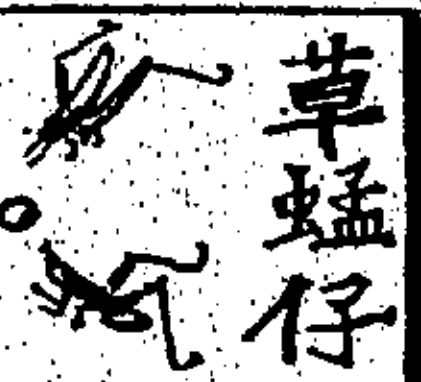 草蜢仔